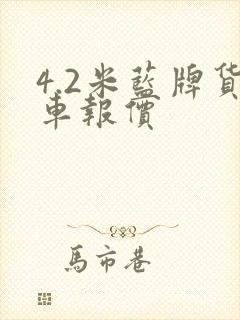 4.2米藍牌貨
車報價
馬市巷